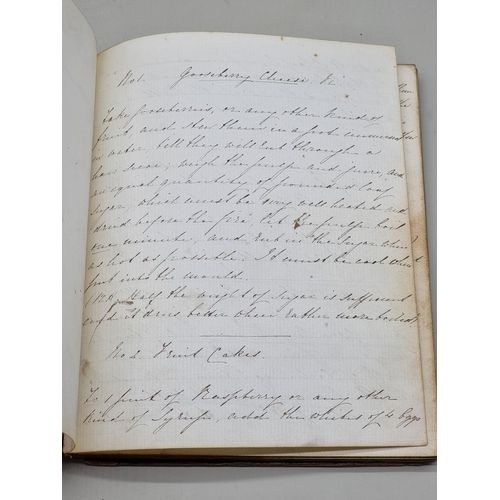 No 1. Gooseberry Cheese &c
Take Gooseberries, or any other kind of
fruit, and stew them in a pot immersed
in water, till they will rub through a
hair sieve; weigh the pulp and juice, and
an equal quantity of pounded loaf
Sugar; which must be very well heated and
dried before the fire: let the pulp boil
one minute, and rub in the Sugar when
as hot as possible; It must be cool when
put into the mould.
N.B. Half the weight of Sugar is sufficient
and it dries better when rather more boiled
No 2. Fruit Cakes.
To 1 pint of Raspberry or any other
kind of Syrup, add the whites of 4 Eggs